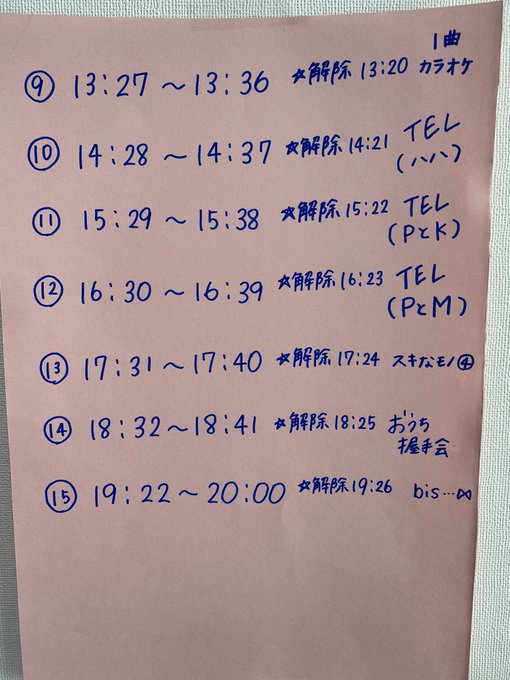 ⑨ 13:27 ～ 13:36 ☆解除 13:20 1曲 カラオケ
⑩ 14:28 ～ 14:37 ☆解除 14:21 TEL (ハハ)
⑪ 15:29 ～ 15:38 ☆解除 15:22 TEL (PとK)
⑫ 16:30 ～ 16:39 ☆解除 16:23 TEL (PとM)
⑬ 17:31 ～ 17:40 ☆解除 17:24 スキなモノ④
⑭ 18:32 ～ 18:41 ☆解除 18:25 おうち握手会
⑮ 19:22 ～ 20:00 ☆解除 19:26 bis…⋈